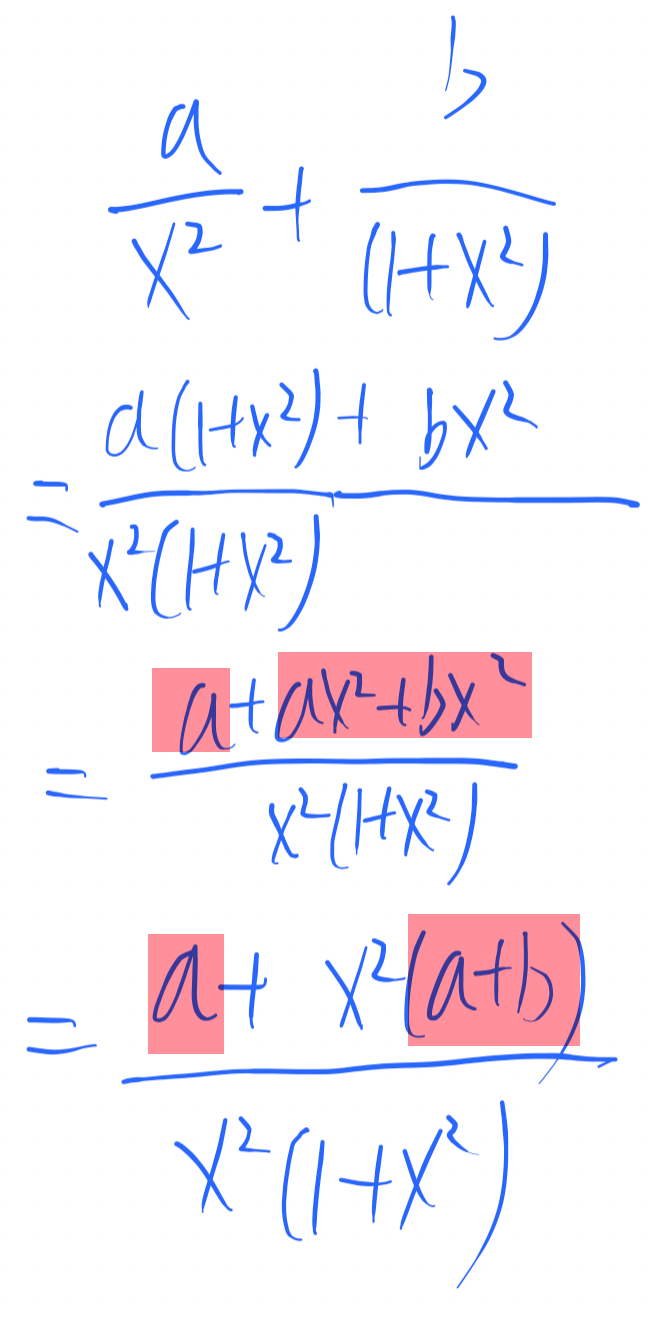 a/x² + b/(1+x²)
= (a(1+x²) + bx²)/(x²(1+x²))
= (a + ax² + bx²)/(x²(1+x²))
= (a + x²(a+b))/(x²(1+x²))